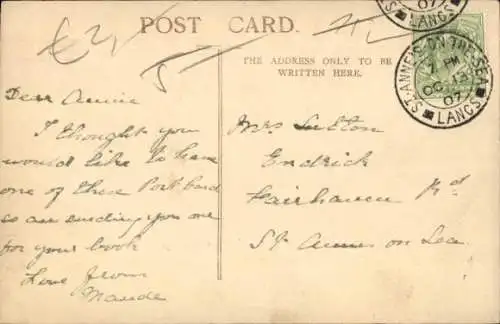 POST CARD.
THE ADDRESS ONLY TO BE
WRITTEN HERE.
07
LANCS
ST. ANNE'S-ON-THE-SEA
7 PM
OC 13
07
LANCS
Dear Annie
I thought you
would like to have
one of these Post Card
so am sending you one
for your book
Love from
Maude
Mrs Sutton
Endrick
Fairhaven Rd
St Annes on Sea